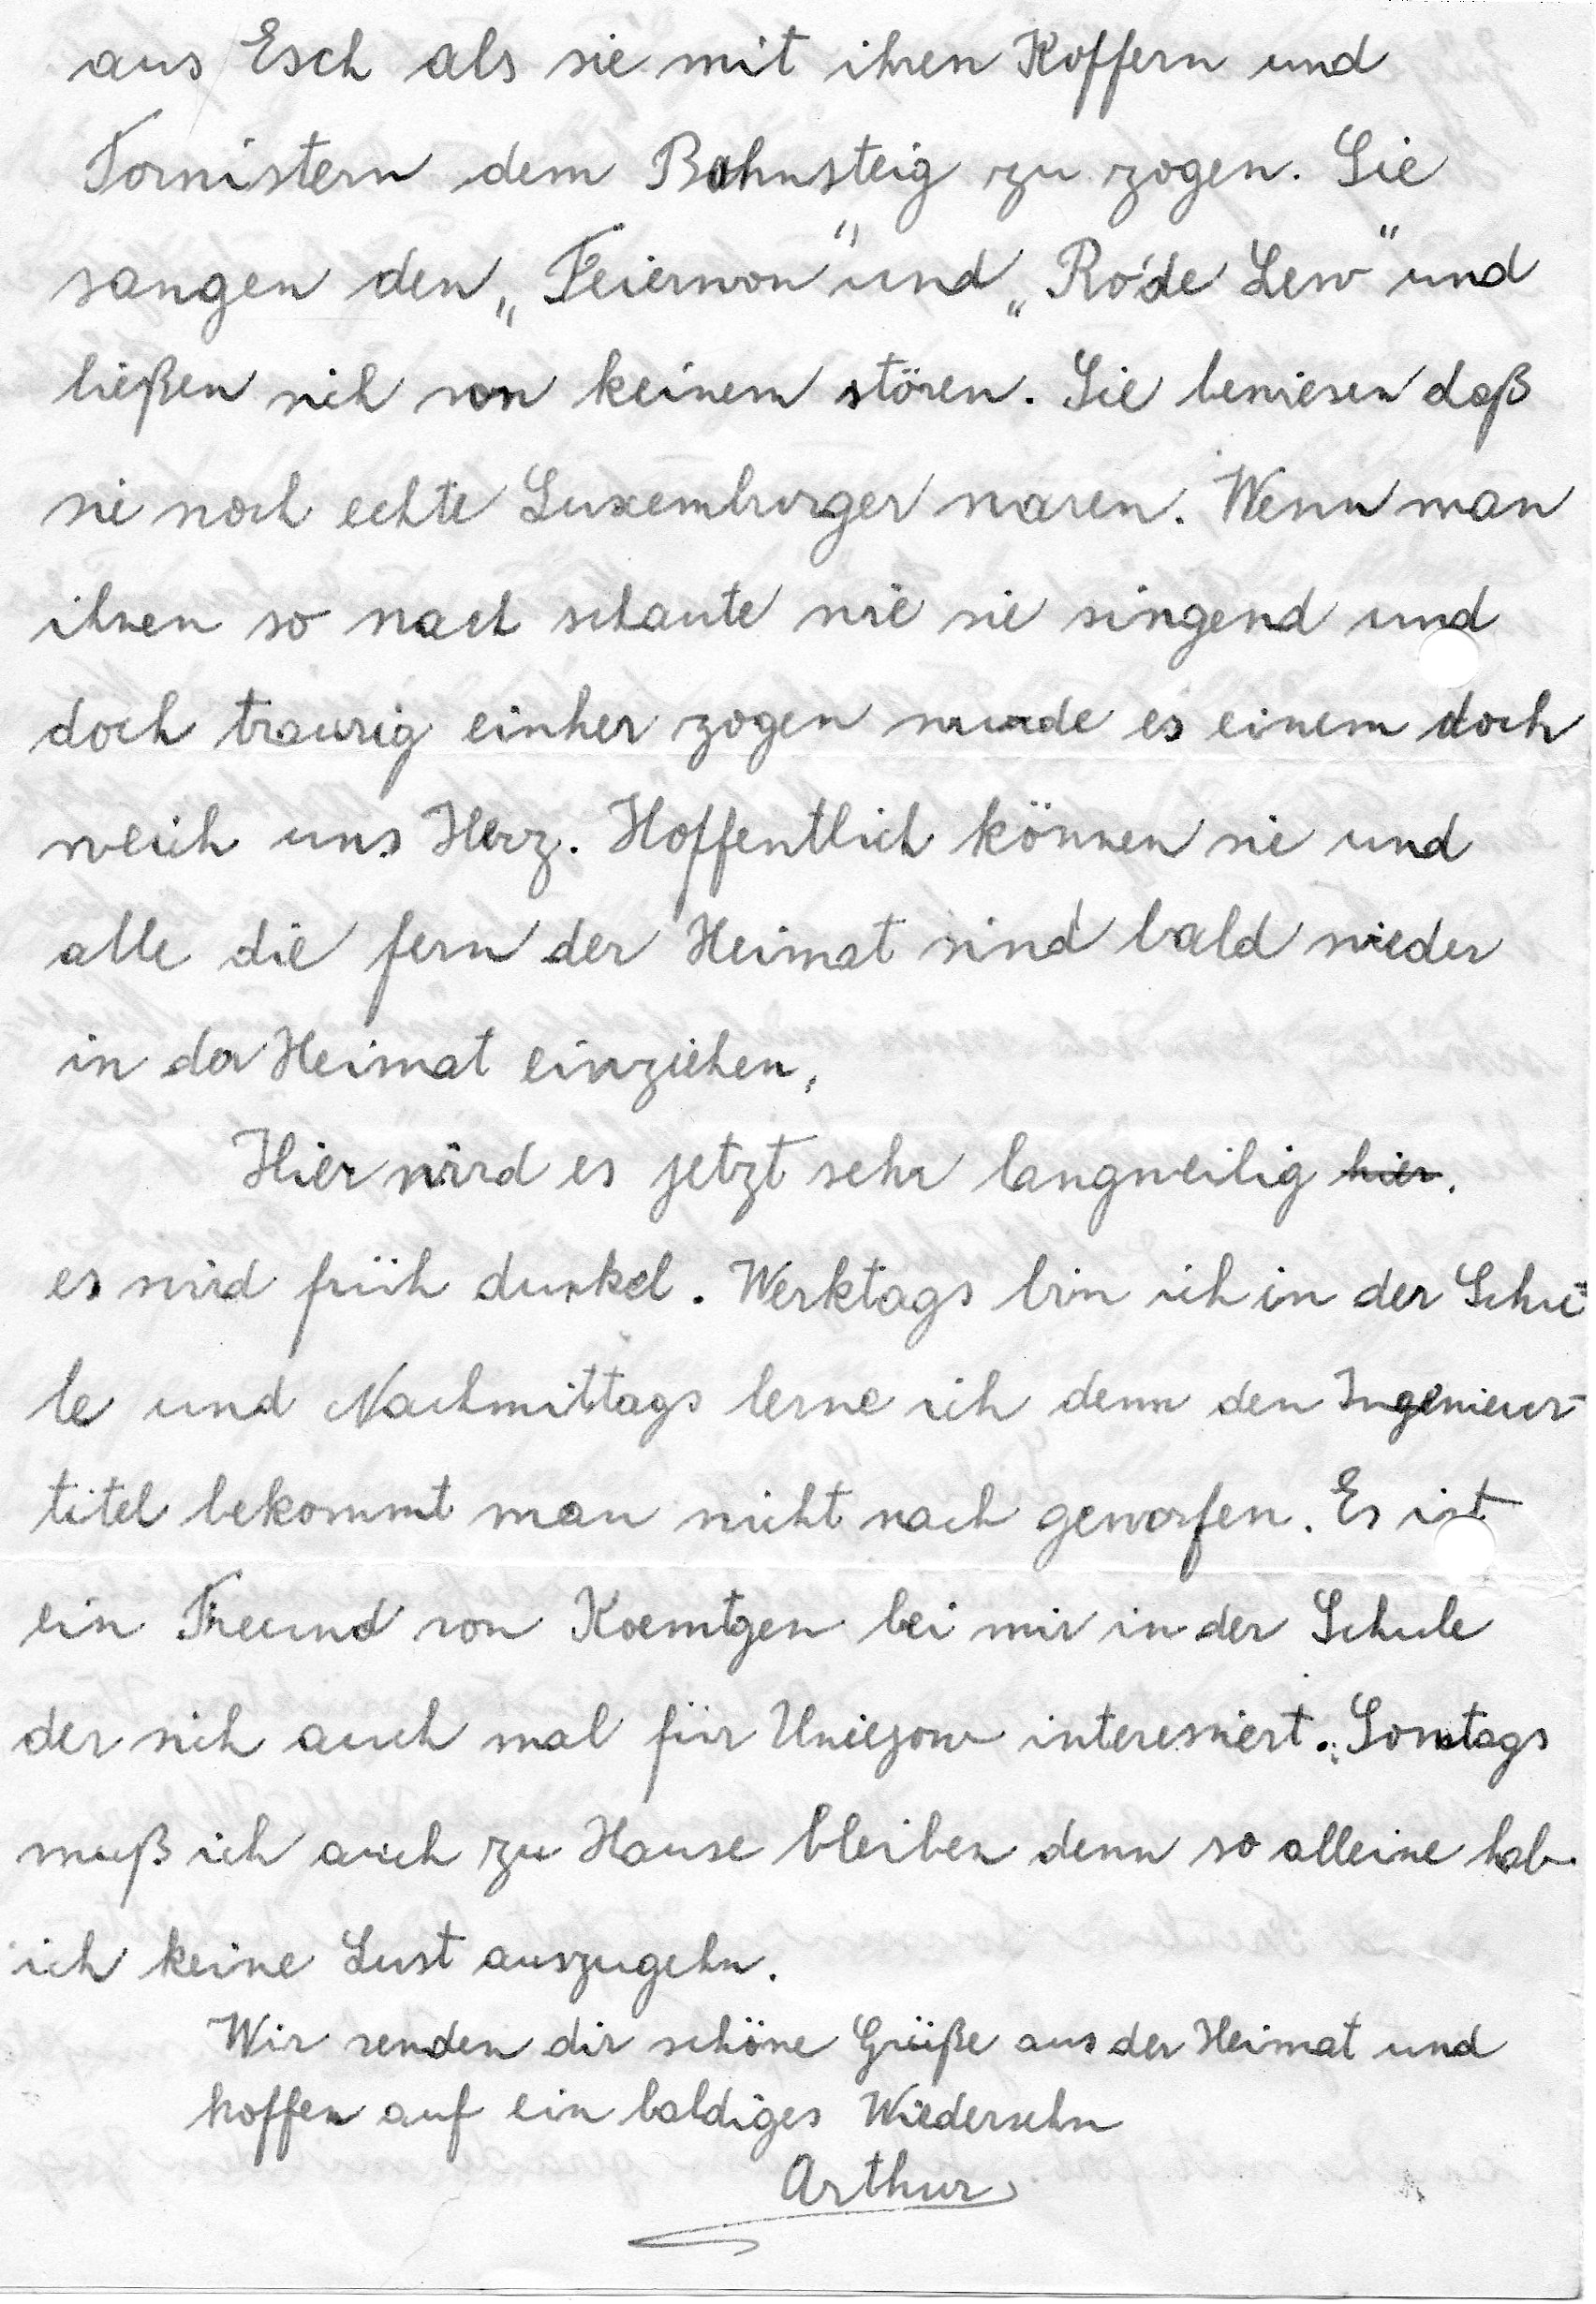 aus Esch als sie mit ihren Koffern und
Tornistern dem Bahnsteig zu zogen. Sie
sangen den „Feierwon" und „Ro'de Lew" und
ließen sich von keinem stören. Sie bewiesen daß
sie noch echte Luxemburger waren. Wenn man
ihnen so nach schaute wie sie singend und
doch traurig einher zogen wurde es einem doch
weich uns Herz. Hoffentlich können sie und
alle die fern der Heimat sind bald wieder
in der Heimat einziehen.
Hier wird es jetzt sehr langweilig hier.
es wird früh dunkel. Werktags bin ich in der Schu=
le und Nachmittags lerne ich denn den Ingenieur-
titel bekommt man nicht nach geworfen. Es ist
ein Freund von Koemtgen bei mir in der Schule
der sich auch mal für Uniejow interessiert. Sontags
muß ich auch zu Hause bleiben denn so alleine hab
ich keine Lust auszugehn.
Wir senden dir schöne Grüße aus der Heimat und
hoffen auf ein baldiges Wiedersehn
Arthur